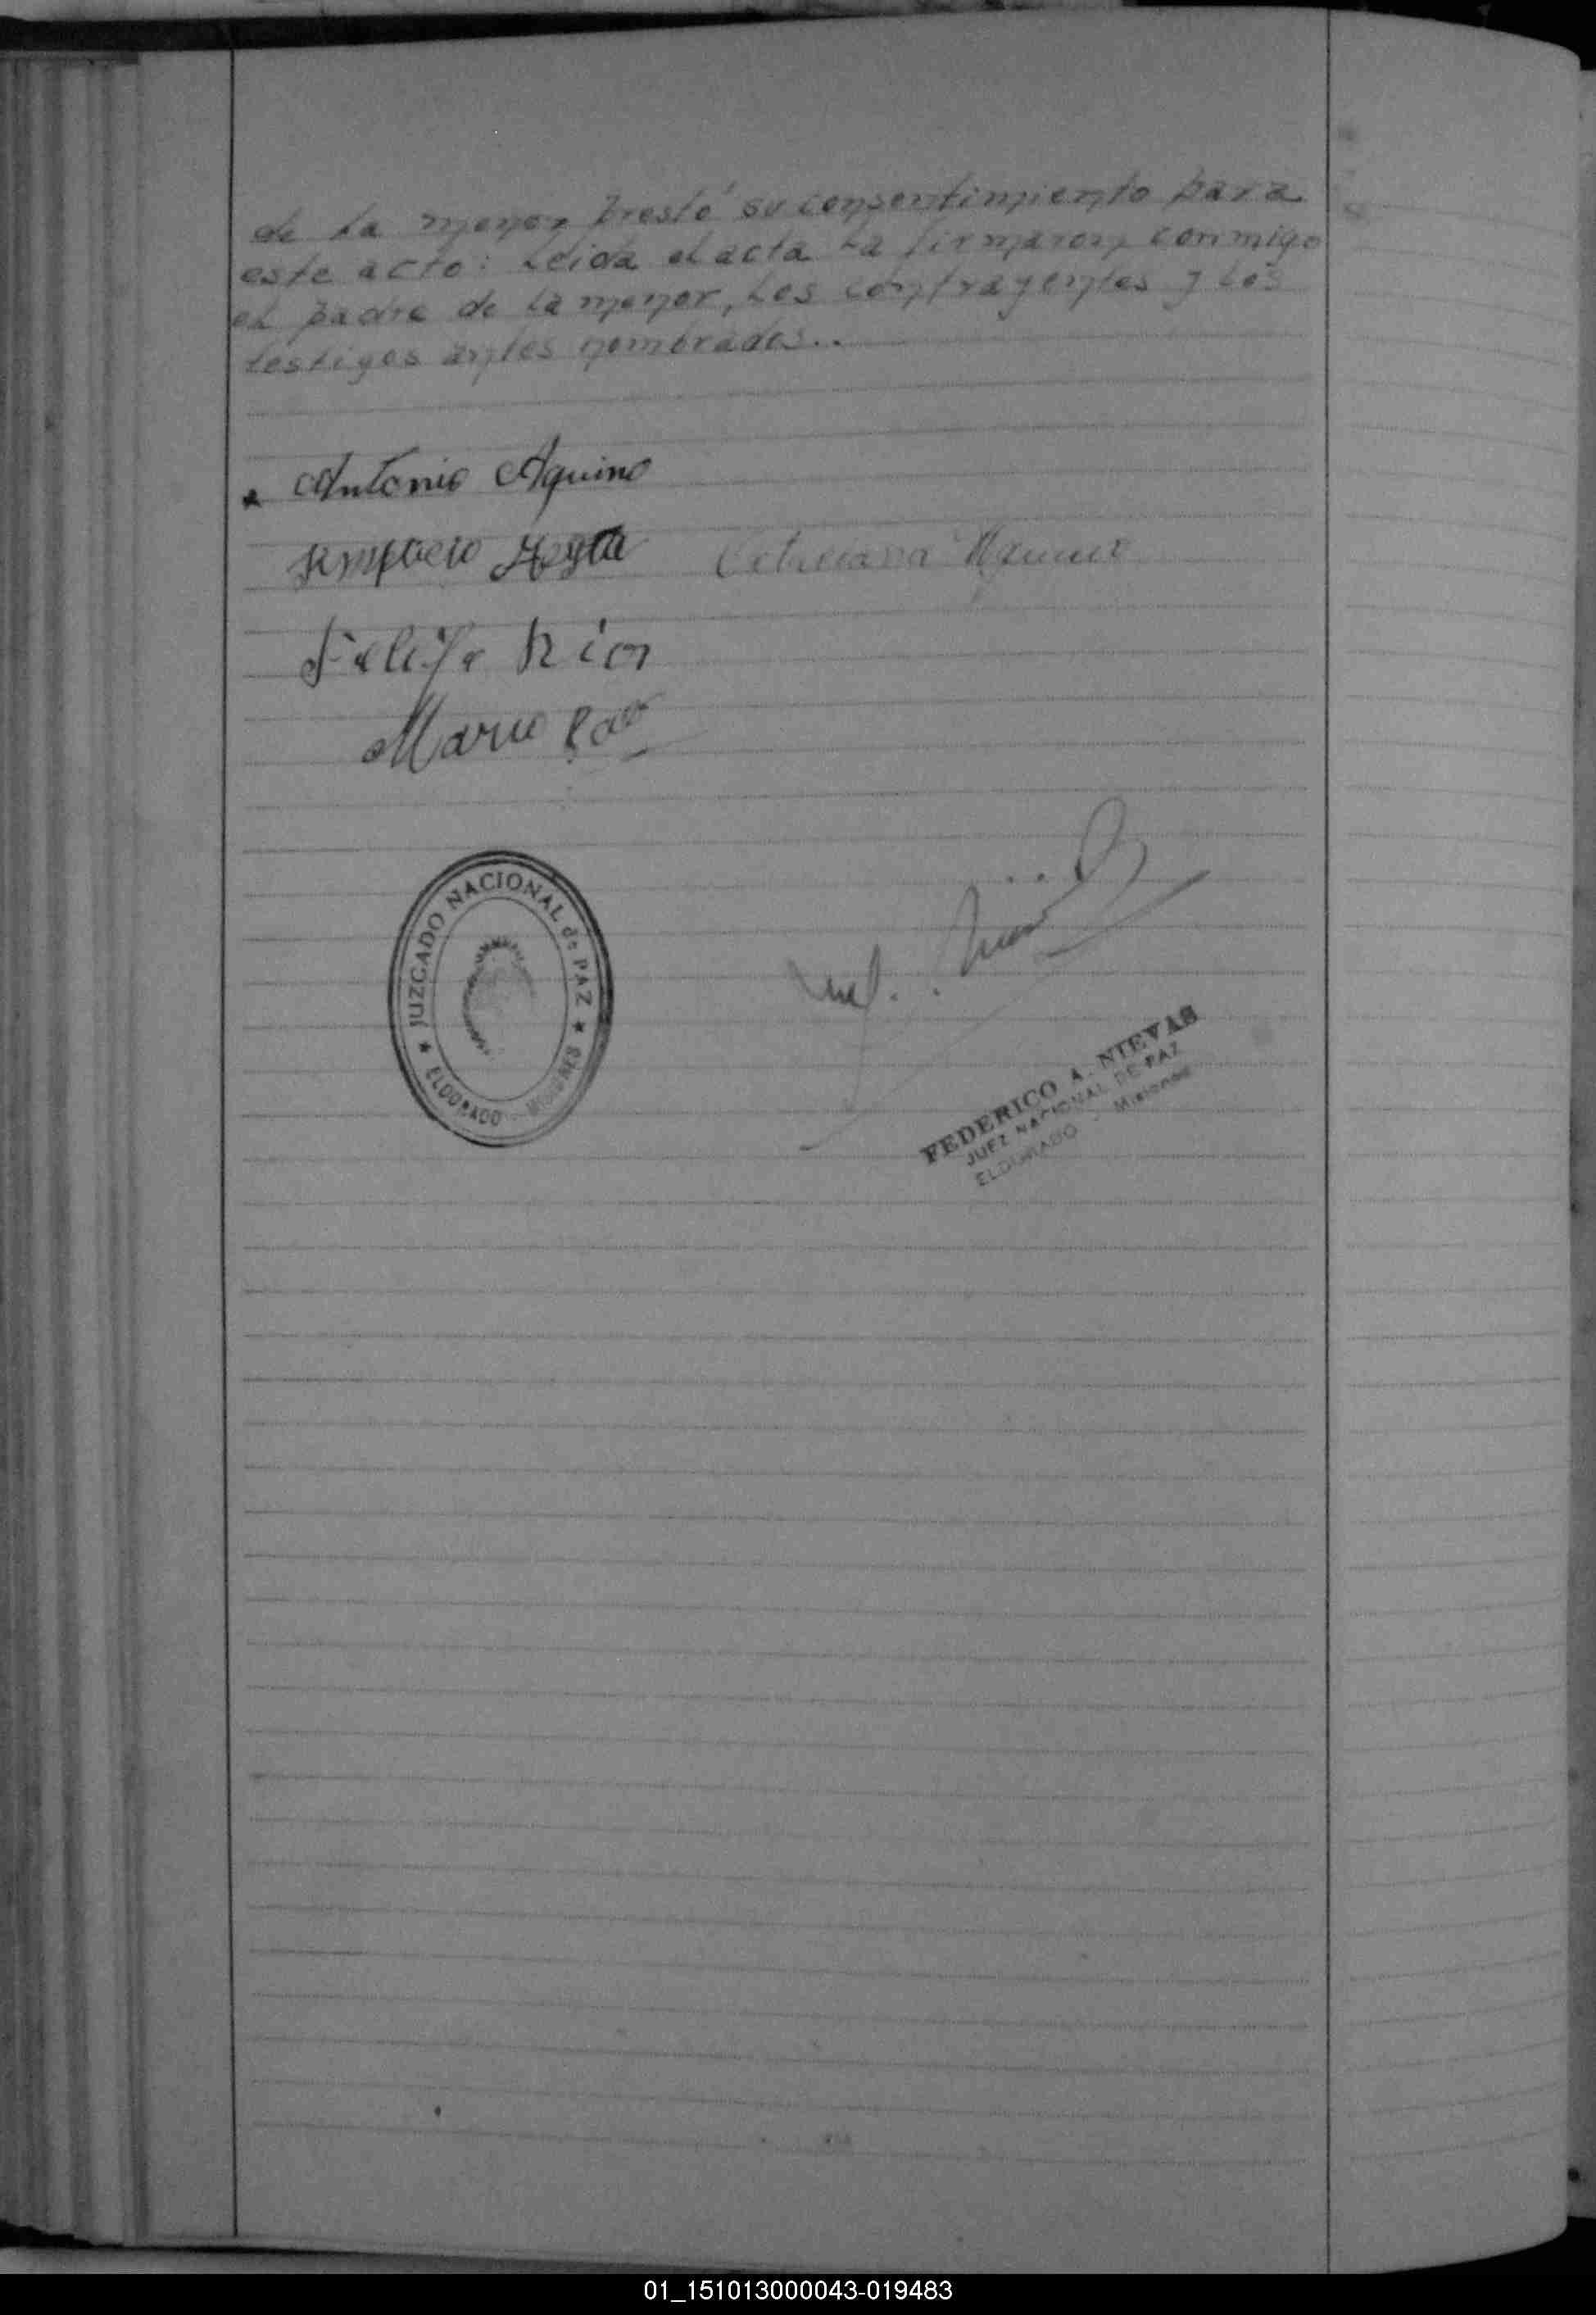 de la menor prestó su consentimiento para
este acto: Leida el acta la firmaron conmigo
el padre de la menor, Los contrayentes y Los
testigos antes nombrados..
Antonio Aquino
Aquino
Felipe Rios
Mario
JUZGADO NACIONAL de PAZ
★ ELDORADO - MISIONES ★
FEDERICO A. NIEVAS
JUEZ NACIONAL DE PAZ
ELDORADO - Misiones
01_151013000043-019483